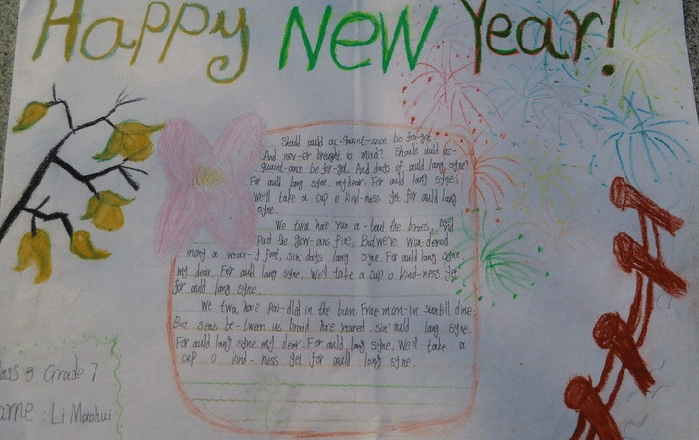 Happy New Year!
Should auld ac-quaint-ance be for-got
And nev-er brought to mind? Should auld ac-
quaint-ance be for-got. And days of auld lang syne?
For auld lang syne, my dear. For auld lang syne.
We'll take a cup o kind-ness yet for auld lang
syne.
We twa have run a-bout the braes, And
the gow-ans fine, But we've wan-dered
many a wear-y foot, sin days lang syne. For auld lang syne,
my dear. For auld lang syne. We'll take a cup o kind-ness yet
for auld lang syne.
We twa have pai-dled in the burn. Frae morn-in sun till dine.
But seas be-tween us braid have roared sin' auld lang syne.
For auld lang syne my dear. For auld lang syne, We'll take a
cup o kind-ness yet for auld lang syne
Class 3 Grade 7
Name: Li